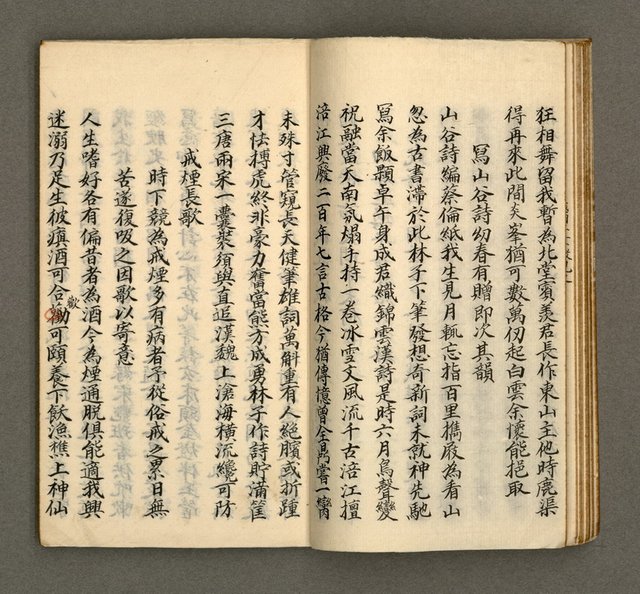 狂相舞留我暫為北堂賓羨君長作東山主他時鹿渠
得再來此間矣峯猶可數萬仞起白雲余懷能挹取
寫山谷詩勿春有贈即次其韻
山谷詩編蔡倫紙我生見月輒忘指百里檇㞕為看山
忽為古書滯於此林子下筆發想奇新詞未就神先馳
寫余飯顆卓午身成君織錦雲漢詩是時六月鳥聲變
祝融當天南氛煬手持一卷冰雪文風流千古涪江擅
涪江興廢二百年七言古格今猶傳憶曾全鼎嘗一臠
未殊寸管窺長天健筆雄詞萬斛重有人絕臏或折踵
才怯摶虎終非豪力奮當熊方成勇林子作詩貯滿筐
三唐兩宋一囊裝須與直追漢魏上滄海橫流纔可防
戒煙長歌
時下競為戒煙多有病者予從俗戒之累日無
苦遂復吸之因歌以寄意
人生嗜好各有偏昔者為酒今為煙通脫俱能適我興
迷溺乃足生彼瘨酒可合歡可頤養下飫漁樵上神仙
歡